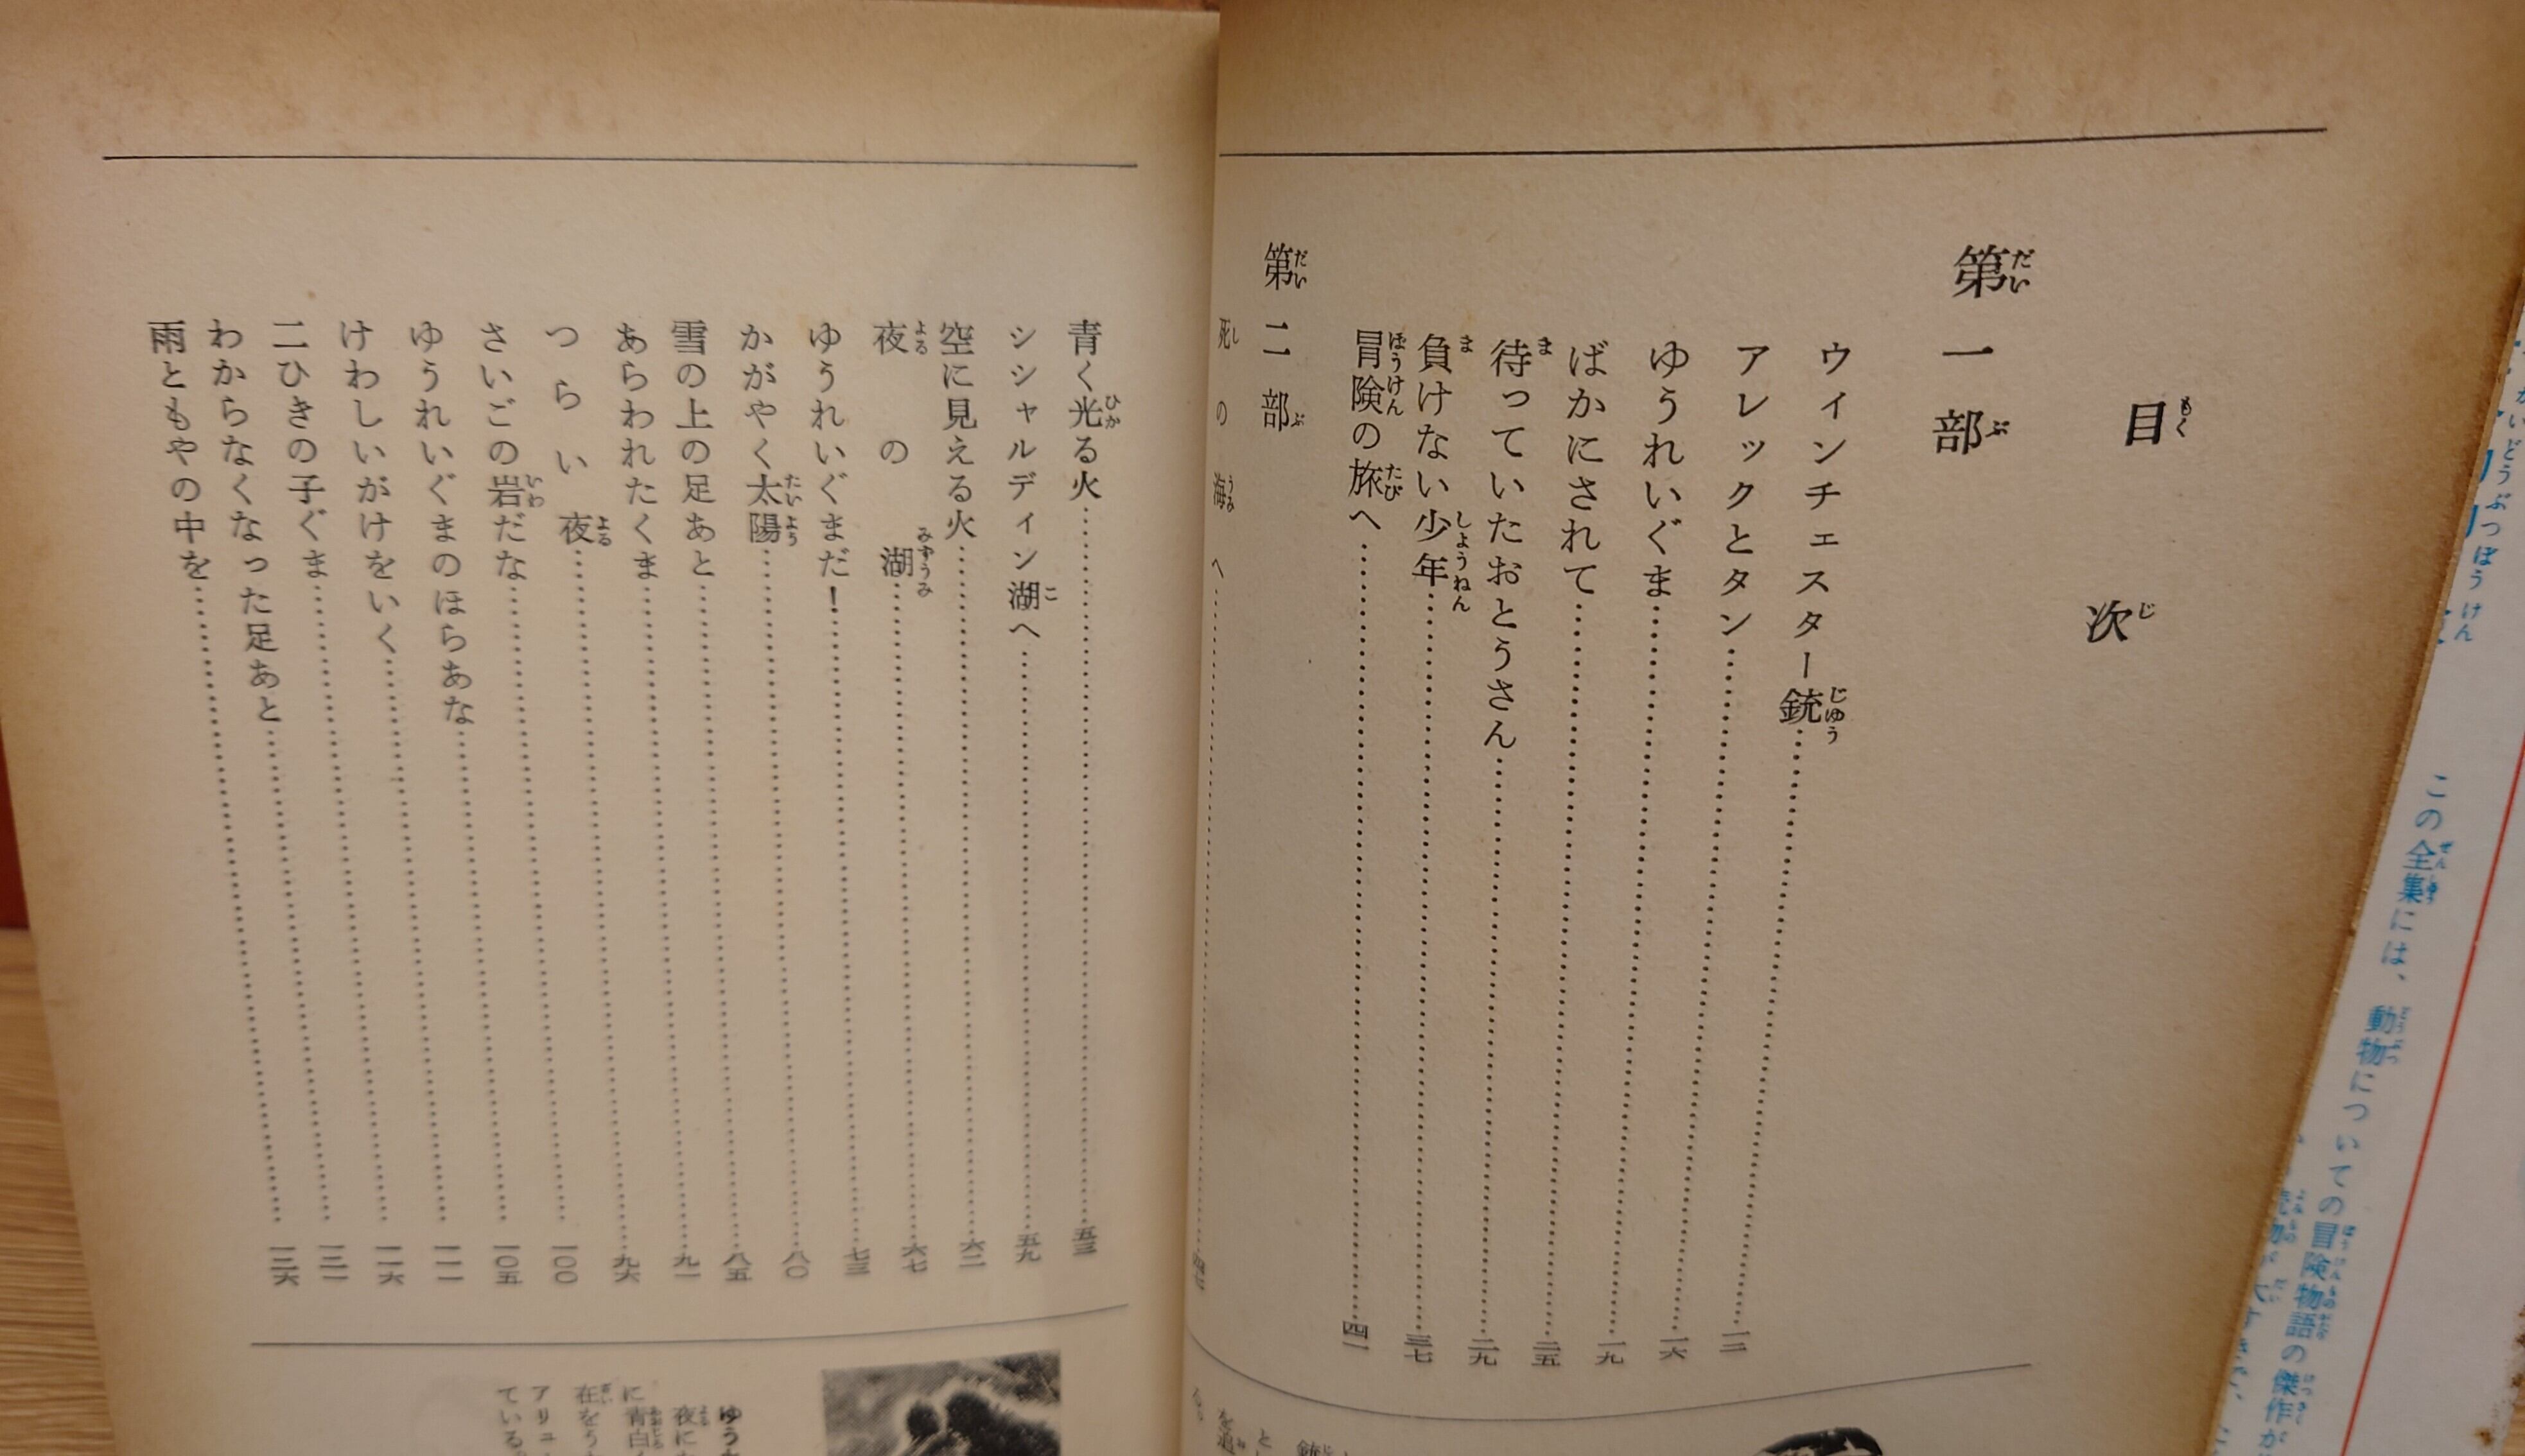 目次
第一部
ウィンチェスター銃……一二
アレックとタン……一六
ゆうれいぐま……一九
ばかにされて……二五
待っていたおとうさん……二九
負けない少年……三七
冒険の旅へ……四一
第二部
死の海へ……
青く光る火……五三
シシャルディン湖へ……五九
空に見える火……六二
夜の湖……六七
ゆうれいぐまだ！……七三
かがやく太陽……八〇
雪の上の足あと……八五
あらわれたくま……九一
つらい夜……九六
さいごの岩だな……一〇〇
ゆうれいぐまのほらあな……一〇五
けわしいがけをいく……一一一
二ひきの子ぐま……一一六
わからなくなった足あと……一二一
雨ともやの中を……一二六
この全集には、動物についての冒険物語の傑作が